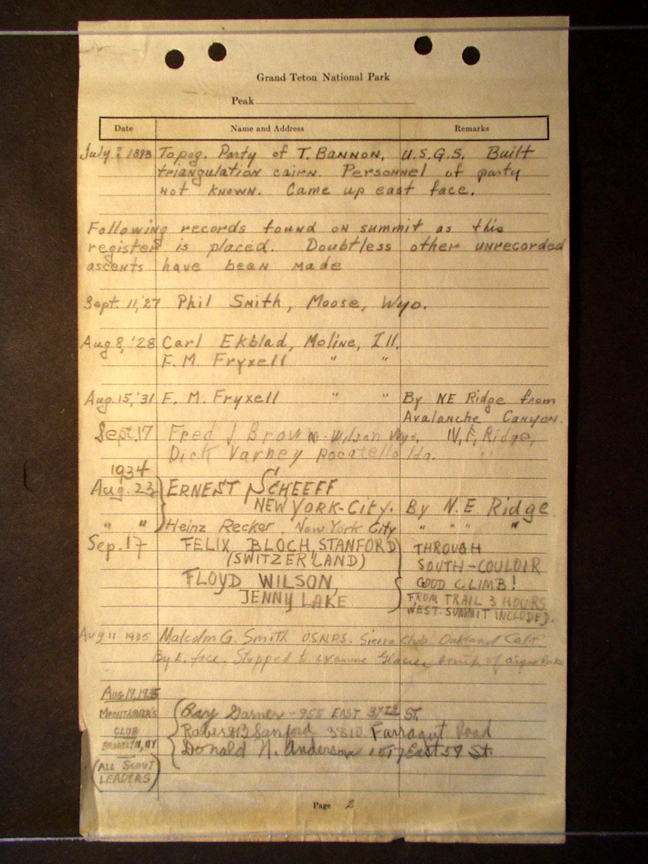 Grand Teton National Park
Peak
Date Name and Address Remarks
July 1898 Topog. Party of T. BANNON, U.S.G.S. Built
triangulation cairn. Personnel of party
not known. Came up east face.
Following records found on summit as this
register is placed. Doubtless other unrecorded
ascents have been made
Sept. 11, '27 Phil Smith, Moose, Wyo.
Aug 8, '28 Carl Ekblad, Moline, Ill.
F. M. Fryxell " "
Aug. 15, '31 F. M. Fryxell " " By NE Ridge from
Avalanche Canyon.
Sept. 17 Fred J Brown - Wilson Wyo. Ridge,
Dick Varney Pocatello Ida. "
1934
Aug. 23 ERNEST SCHEEFF
NEW YORK-CITY. By N.E Ridge.
" " Heinz Recker New York City " " " "
Sep. 17 FELIX BLOCH, STANFORD THROUGH
(SWITZERLAND) SOUTH-COULOIR
FLOYD WILSON, GOOD CLIMB!
JENNY LAKE FROM TRAIL 3 HOURS
WEST-SUMMIT INCLUDED).
Aug 11 1935 Malcolm G. Smith USNPS. Sierra Club Oakland Calif
By E. face. Stopped to examine Glacier
Aug 19, 1935
MOUNTAINEERS Ray Garner - 955 EAST 37TH St.
CLUB Robert Sanford 3810 Farragut Road
BROOKLYN, NY Donald N. Anderson 1517 East 59 St.
(ALL SCOUT
LEADERS)
Page 2